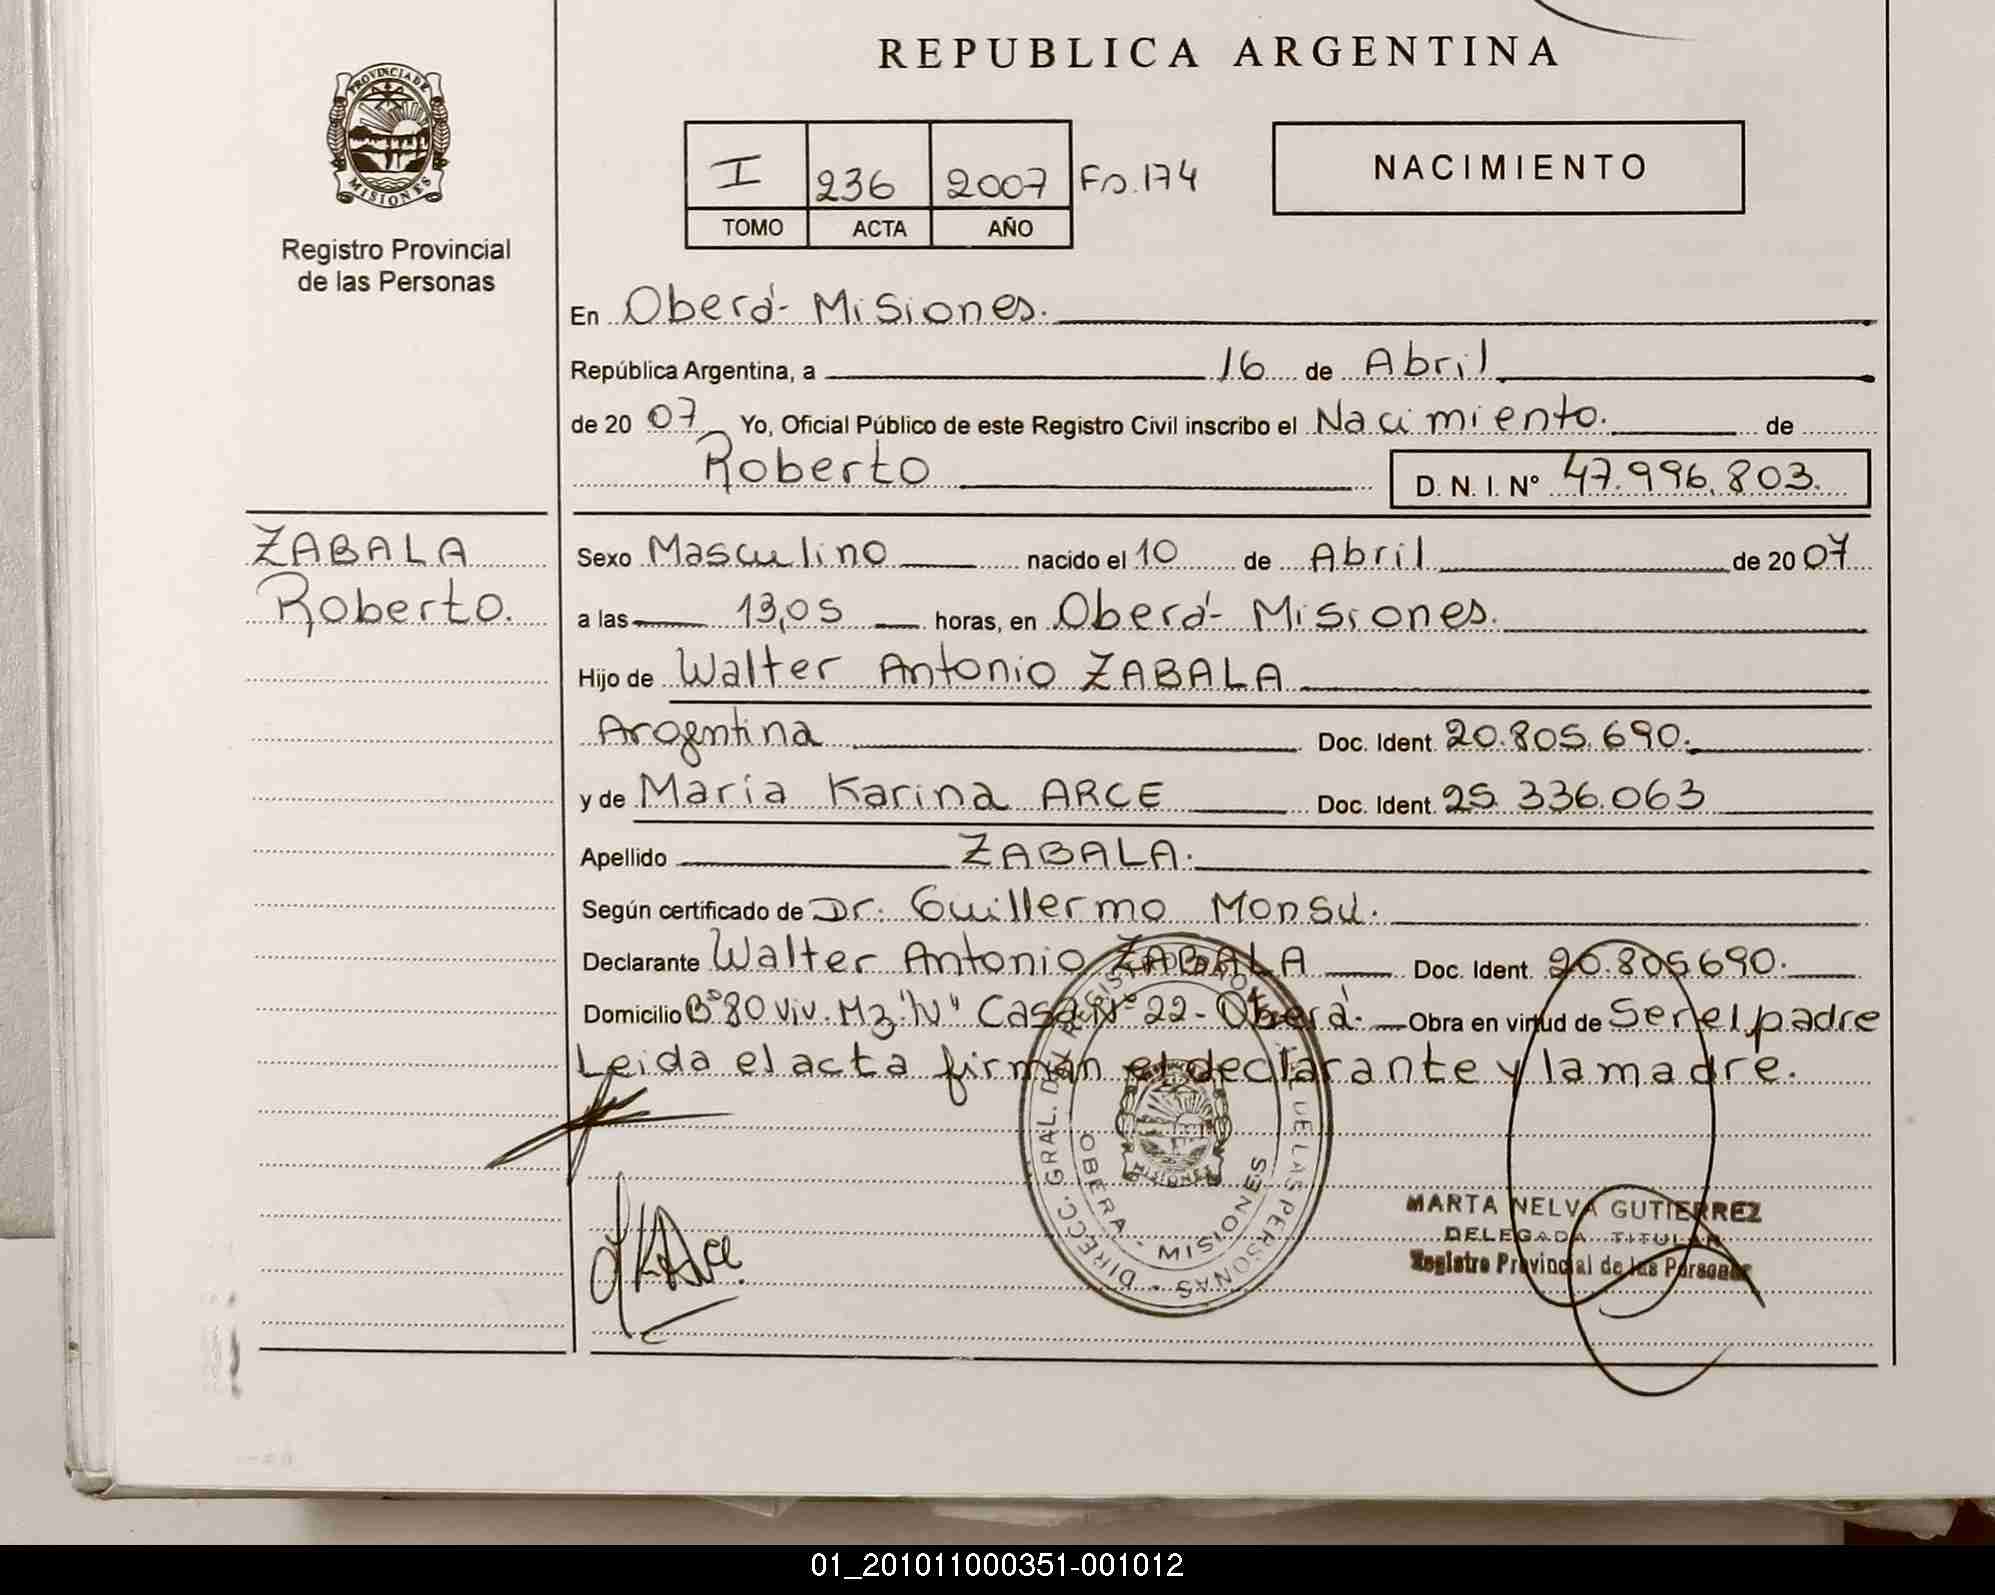 REPUBLICA ARGENTINA
PROVINCIA DE MISIONES
Registro Provincial
de las Personas
I 236 2007 Fo. 174
TOMO ACTA AÑO
NACIMIENTO
En Oberá - Misiones.
República Argentina, a 16 de Abril
de 20 07 Yo, Oficial Público de este Registro Civil inscribo el Nacimiento. de
Roberto D. N. I. N° 47.996.803.
ZABALA
Roberto.
Sexo Masculino nacido el 10 de Abril de 20 07
a las 13,05 horas, en Oberá - Misiones.
Hijo de Walter Antonio ZABALA
Argentina Doc. Ident. 20.805.690.
y de María Karina ARCE Doc. Ident. 25.336.063
Apellido ZABALA.
Según certificado de Dr. Guillermo Monsu.
Declarante Walter Antonio ZABALA Doc. Ident. 20.805690.
Domicilio B° 80 Viv. Mz "N" Casa N° 22 - Oberá. Obra en virtud de Ser el padre
Leida el acta firman el declarante y la madre.
DIRECC. GRAL. DEL REGISTRO PROV. DE LAS PERSONAS
OBERA - MISIONES
MISIONES
MARTA NELVA GUTIERREZ
DELEGADA TITULAR
Registro Provincial de las Personas
01_201011000351-001012